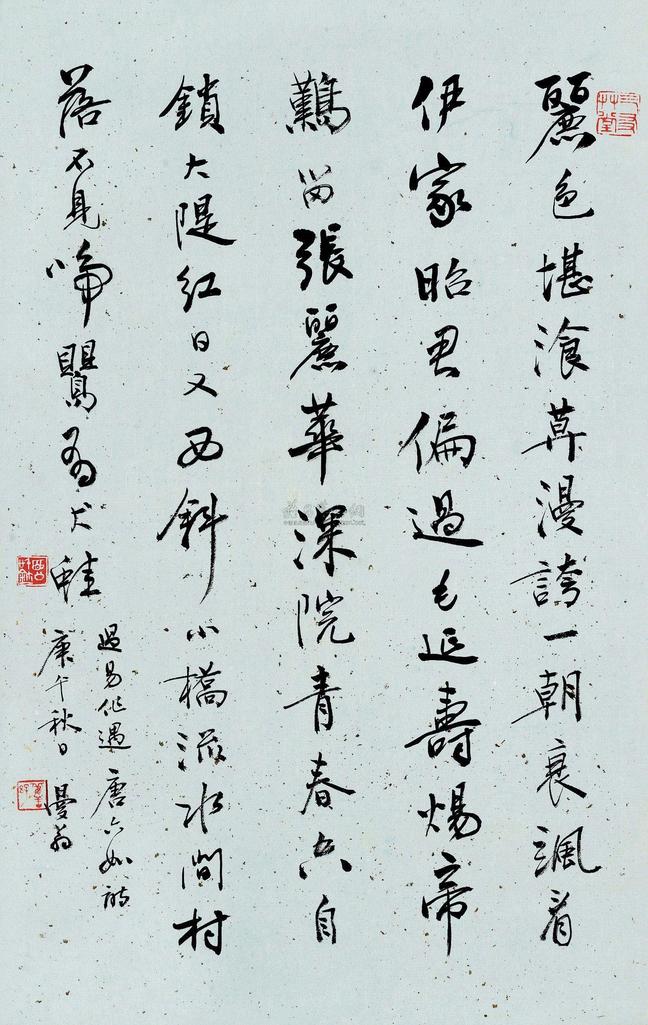 麗色堪湌莫漫誇一朝衰颯看
伊家昭君偏過毛延壽煬帝
難留張麗華深院青春空自
鎖大隄紅日又西斜小橋流水間村
落不見啼鶯有吠蛙
過易作遇 唐六如詩
庚午秋日 曼翁